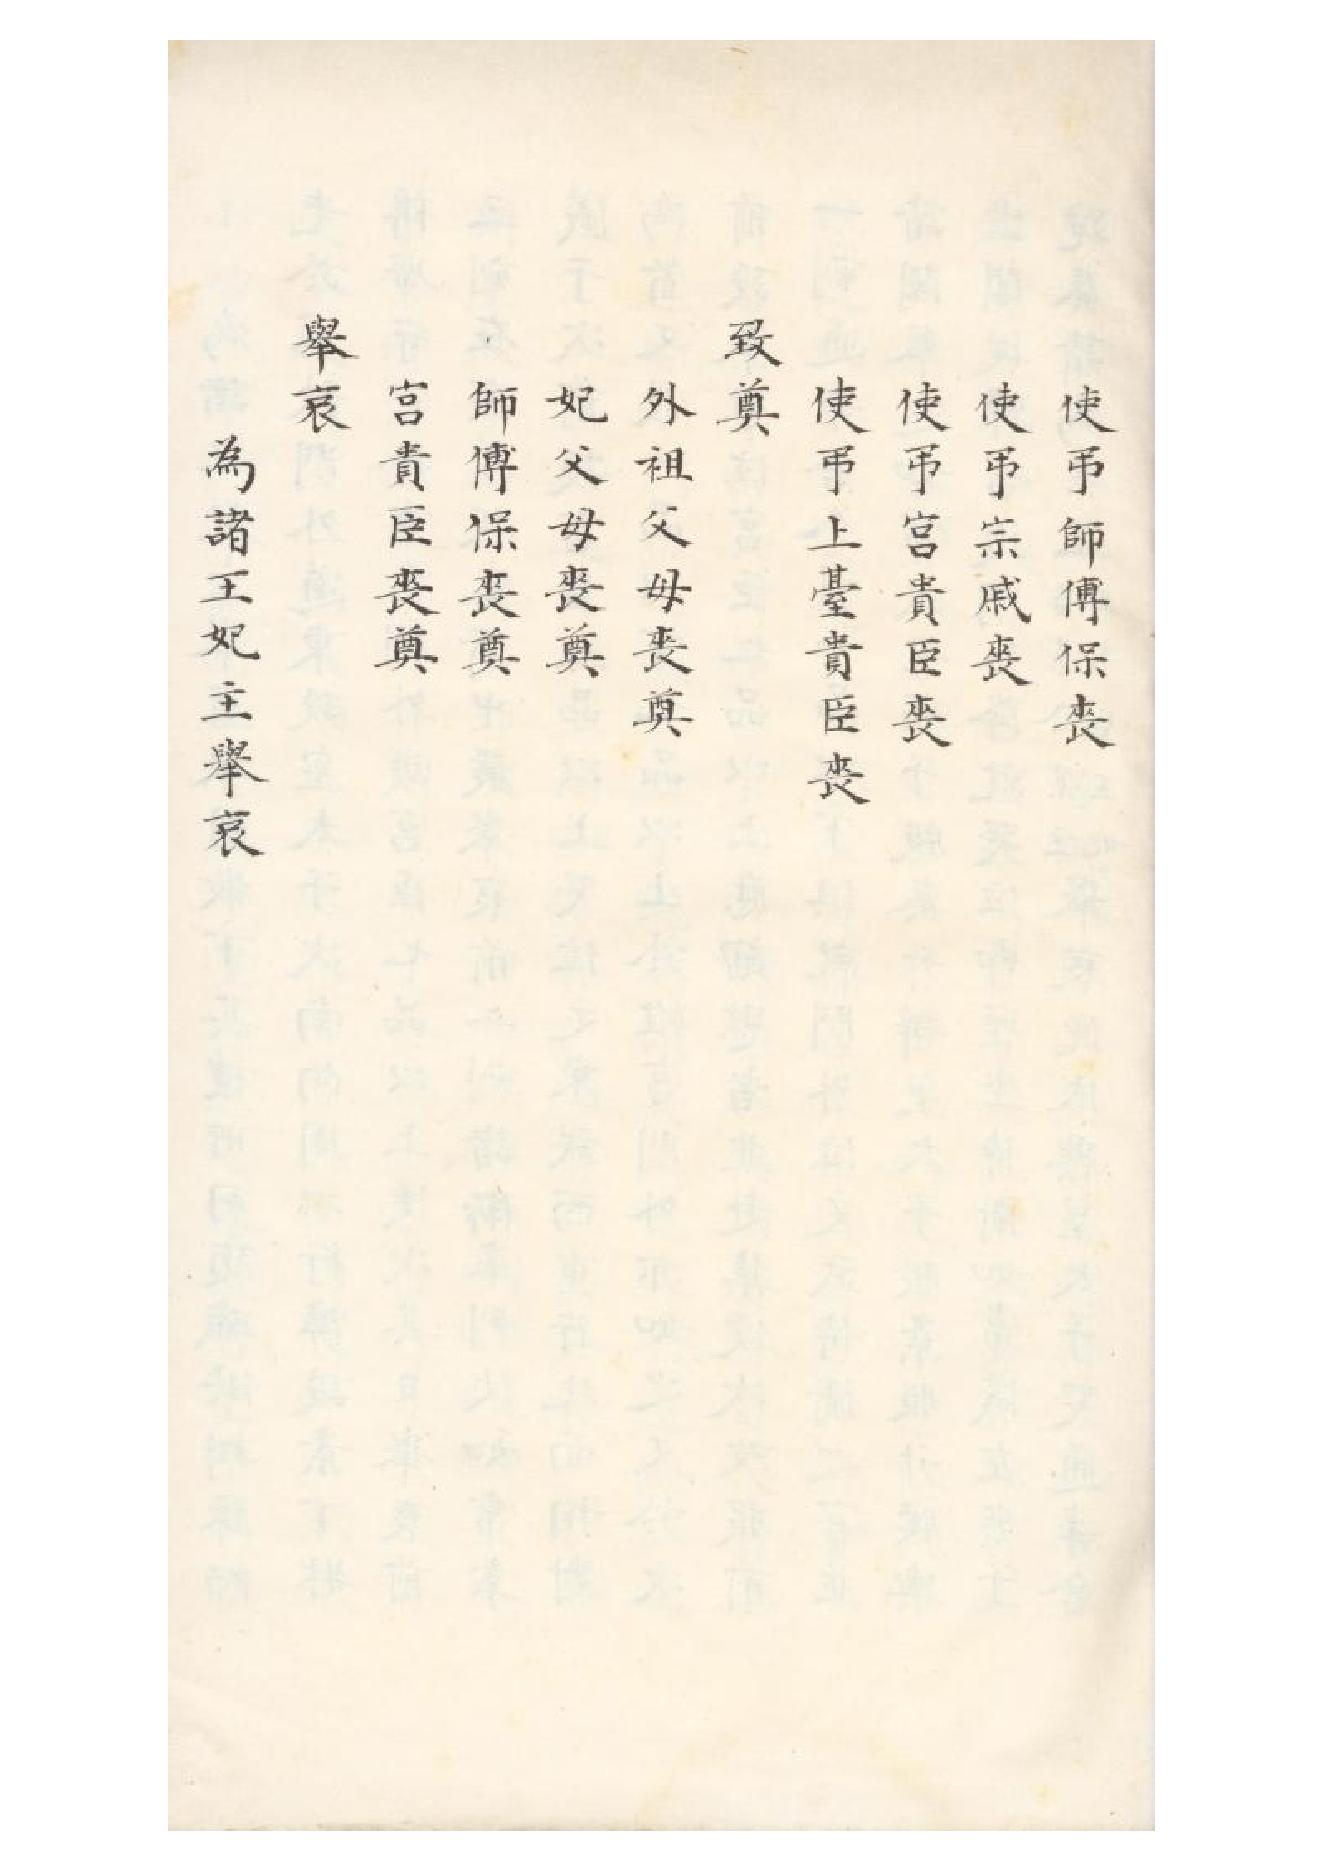 使弔師傅保喪
使弔宗戚喪
使弔宮貴臣喪
使弔上臺貴臣喪
致奠
外祖父母喪奠
妃父母喪奠
師傅保喪奠
宮貴臣喪奠
舉哀
為諸王妃主舉哀